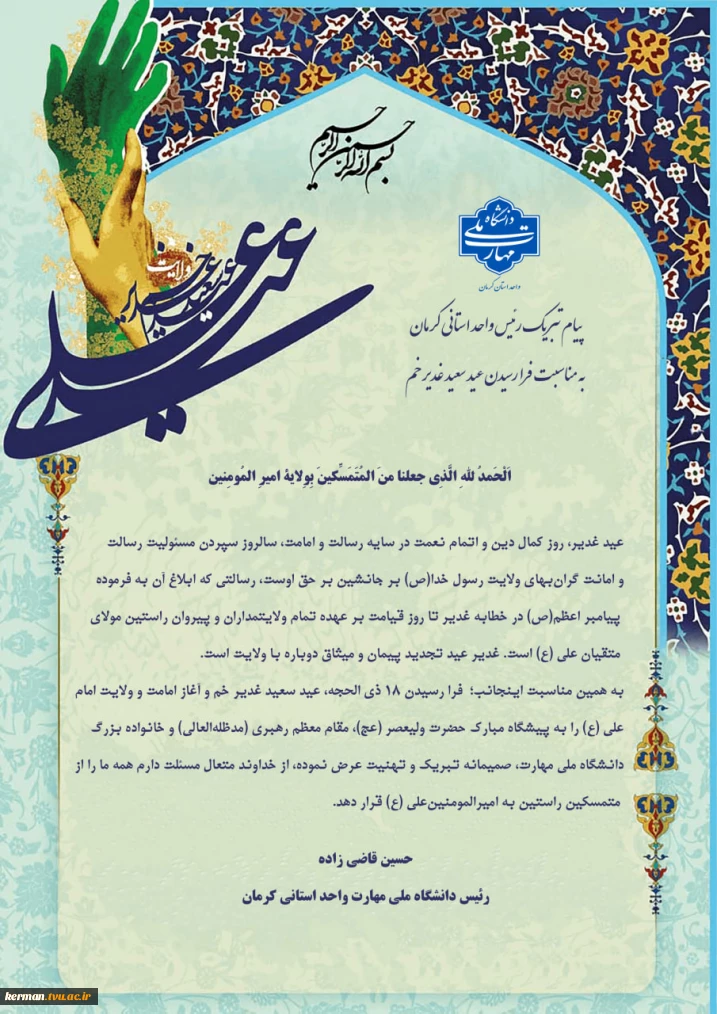 بسم الله الرحمن الرحیم
دانشگاه
ملی
مهارت
واحد استان کرمان
ولایت
عید سعید غدیر خم
پیام تبریک رئیس واحد استانی کرمان
به مناسبت فرا رسیدن عید سعید غدیر خم
اَلْحَمدُ للهِ الَّذِی جعلنا منَ المُتَمَسِّکینَ بِوِلایهٔ امیرِ المُومِنین
عید غدیر، روز کمال دین و اتمام نعمت در سایه رسالت و امامت، سالروز سپردن مسئولیت رسالت
و امانت گران‌بهای ولایت رسول خدا(ص) بر جانشین بر حق اوست، رسالتی که ابلاغ آن به فرموده
پیامبر اعظم(ص) در خطابه غدیر تا روز قیامت بر عهده تمام ولایتمداران و پیروان راستین مولای
متقیان علی (ع) است. غدیر عید تجدید پیمان و میثاق دوباره با ولایت است.
به همین مناسبت اینجانب؛ فرا رسیدن ۱۸ ذی الحجه، عید سعید غدیر خم و آغاز امامت و ولایت امام
علی (ع) را به پیشگاه مبارک حضرت ولیعصر (عج)، مقام معظم رهبری (مدظله‌العالی) و خانواده بزرگ
دانشگاه ملی مهارت، صمیمانه تبریک و تهنیت عرض نموده، از خداوند متعال مسئلت دارم همه ما را از
متمسکین راستین به امیرالمومنین‌علی (ع) قرار دهد.
حسین قاضی زاده
رئیس دانشگاه ملی مهارت واحد استانی کرمان
kerman.tvu.ac.ir